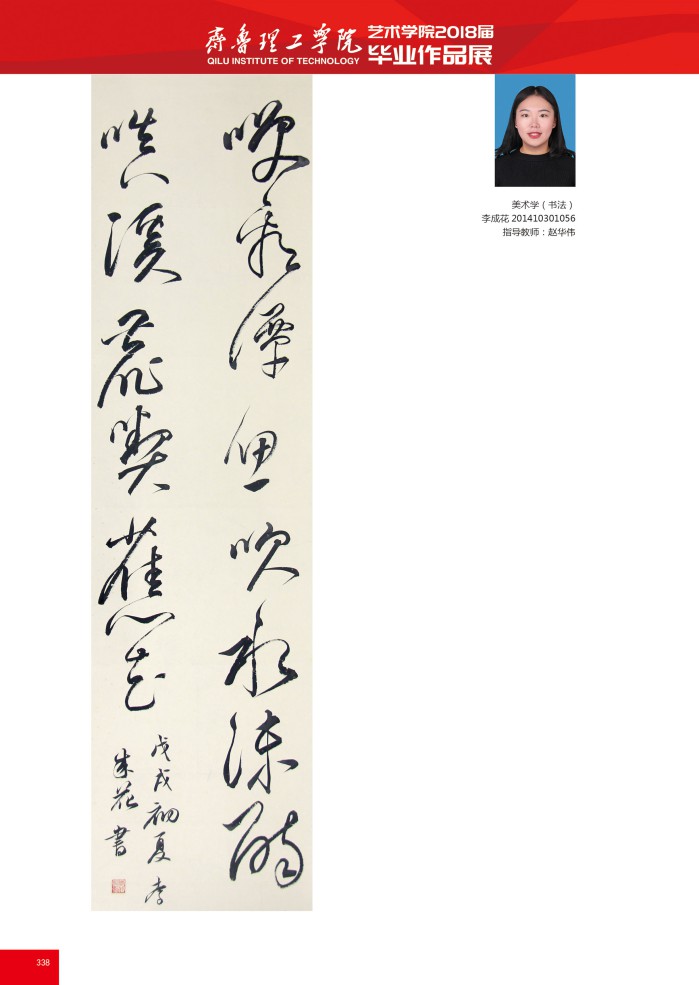 齊魯理工學院
QILU INSTITUTE OF TECHNOLOGY
艺术学院2018届
毕业作品展
咲看潭魚吹水沫醉
嗔溪鹿喫蕉花
戊戌初夏李
成花書
美术学(书法)
李成花 201410301056
指导教师:赵华伟
338